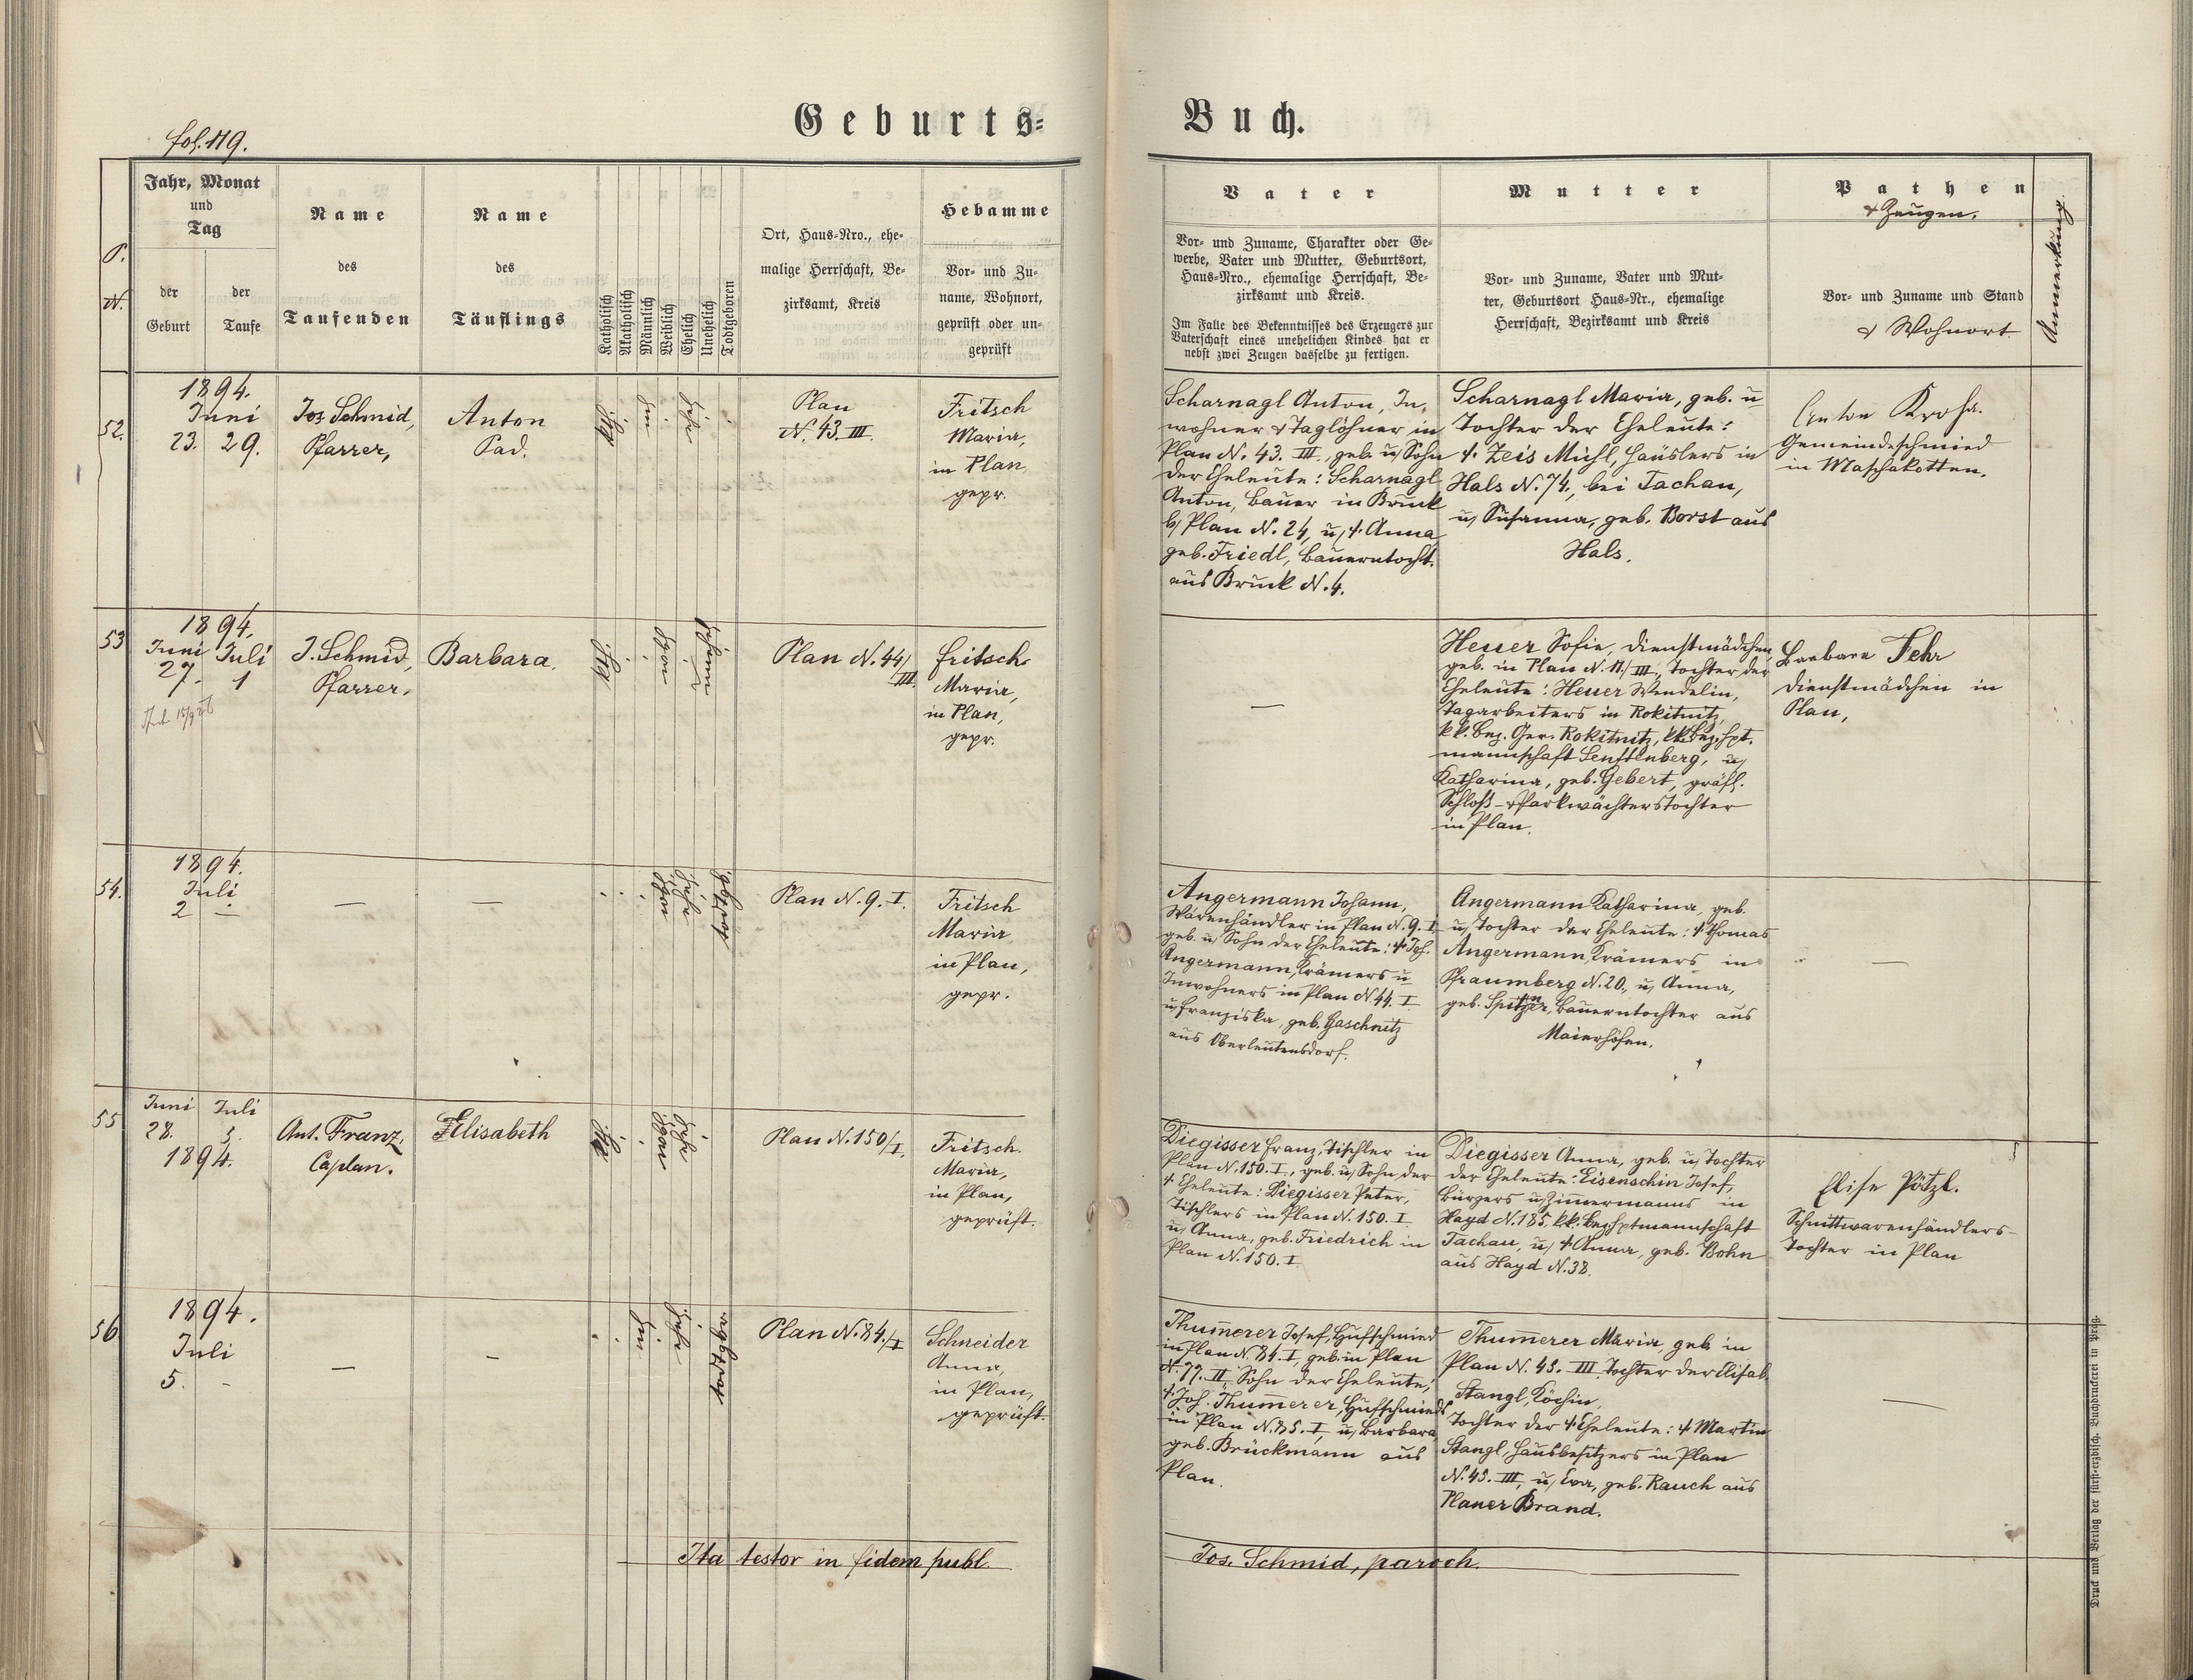 fol. 119.
Geburts-
Buch.
P. N.
Jahr, Monat
und
Tag
der
Geburt
der
Taufe
Name
des
Taufenden
Name
des
Täuflings
Katholisch
Akatholisch
Männlich
Weiblich
Ehelich
Unehelich
Todtgeboren
Ort, Haus-Nro., ehe-
malige Herrschaft, Be-
zirksamt, Kreis
Hebamme
Vor- und Zu-
name, Wohnort,
geprüft oder un-
geprüft
Vater
Vor- und Zuname, Charakter oder Ge-
werbe, Vater und Mutter, Geburtsort,
Haus-Nro., ehemalige Herrschaft, Be-
zirksamt und Kreis.
Im Falle des Bekenntnisses des Erzeugers zur
Vaterschaft eines unehelichen Kindes hat er
nebst zwei Zeugen dasselbe zu fertigen.
Mutter
Vor- und Zuname, Vater und Mut-
ter, Geburtsort Haus-Nr., ehemalige
Herrschaft, Bezirksamt und Kreis
Pathen
& Zeugen.
Vor- und Zuname und Stand
& Wohnort.
Anmerkung.
52.
1894.
Juni
23. 29.
Jos. Schmid,
Pfarrer,
Anton
Pad.
Plan
N. 43. III.
Fritsch
Maria,
in Plan,
gepr.
Scharnagl Anton, In-
wohner & Taglöhner in
Plan N. 43. III., geb. u/ Sohn
der Eheleute: Scharnagl
Anton, Bauer in Bruck
b/ Plan N. 24, u/ †. Anna
geb. Friedl, Bauerntocht.
aus Bruck N. 4.
Scharnagl Maria, geb. u
Tochter der Eheleute:
†. Zeis Michl, Häuslers in
Hals N. 74., bei Tachau,
u/ Susanna, geb. Borst aus
Hals.
Anton Kroha.
Gemeindeschmied
in Maschakotten.
53
1894.
Juni Juli
27. 1
J. Schmid,
Pfarrer.
Barbara.
Plan N. 44/
III.
Fritsch
Maria,
in Plan,
gepr.
—
Heuer Sofie, Dienstmädchen,
geb. in Plan N. 11/III, Tochter der
Eheleute: Heuer Wendelin,
Tagarbeiters in Rokitnitz,
kk. Bez. Ger. Rokitnitz, kk. Bez. Hpt.
mannschaft Senftenberg, u/
Katharina, geb. Gebert, gräfl.
Schloß- & Parkwächterstochter
in Plan.
Barbara Fehr
Dienstmädchen in
Plan,
54.
1894.
Juli
2 —
—
—
Plan N. 9. I.
Fritsch
Maria
in Plan,
gepr.
Angermann Johann,
Warenhändler in Plan N. 9. I
geb. u/ Sohn der Eheleute: †. Joh.
Angermann, Krämers u
Inwohners in Plan N. 44. I
u/ Franziska, geb. Gaschnitz
aus Oberleutensdorf.
Angermann Katharina, geb.
u/ Tochter der Eheleute: †. Thomas
Angermann, Krämers in
Pfraumberg N. 20., u/ Anna,
geb. Spitzer, Bauerntochter aus
Maierhöfen.
—
55
Juni Juli
28. 5.
1894.
Ant. Franz,
Caplan.
Elisabeth
Plan N. 150/I.
Fritsch.
Maria,
in Plan,
geprüft.
Diegisser Franz, Tischler in
Plan N. 150. I., geb. u/ Sohn der
†. Eheleute: Diegisser Peter,
Tischlers in Plan N. 150. I.
u/ Anna, geb. Friedrich in
Plan N. 150. I.
Diegisser Anna, geb. u/ Tochter
der Eheleute: Eisenschin Josef,
Bürgers u/ Zimmermanns in
Hayd N. 185, kk. Bezhptmannschaft
Tachau, u/ †. Anna, geb. Bohn
aus Hayd N. 38.
Elise Pötzl.
Schnittwarenhändlers-
Tochter in Plan
56
1894.
Juli
5. -
—
—
Plan N. 84./I
Schneider
Anna,
in Plan,
geprüft.
Thum̅erer Josef, Hufschmied
in Plan N. 84. I, geb. in Plan
N. 77. II, Sohn der Eheleute,
†. Joh. Thum̅erer, Hufschmieds
in Plan N. 85. I, u/ Barbara,
geb. Brückmann aus
Plan.
Thum̅erer Maria, geb. in
Plan N. 49. III. Tochter der Elisab.
Stangl, Köchin,
Tochter der †. Eheleute: †. Martin
Stangl, Hausbesitzers in Plan
N. 49. III, u/ Eva, geb. Rauch aus
Planer Brand.
—
Ita testor in fidem publ.
Jos. Schmid, paroch.
Druck und Verlag der fürst-erzbisch. Buchdruckerei in Prag.